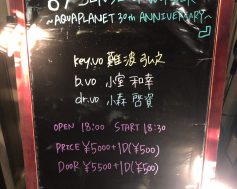 ~AQUAPLANET 30th ANNIVERSARY~
key.vo 難波 弘之
b.vo 小室 和幸
dr.vo 小森 啓資
OPEN 18:00 START 18:30
PRICE ¥5000+1D(¥500)
DOOR ¥5500+1D(¥500)